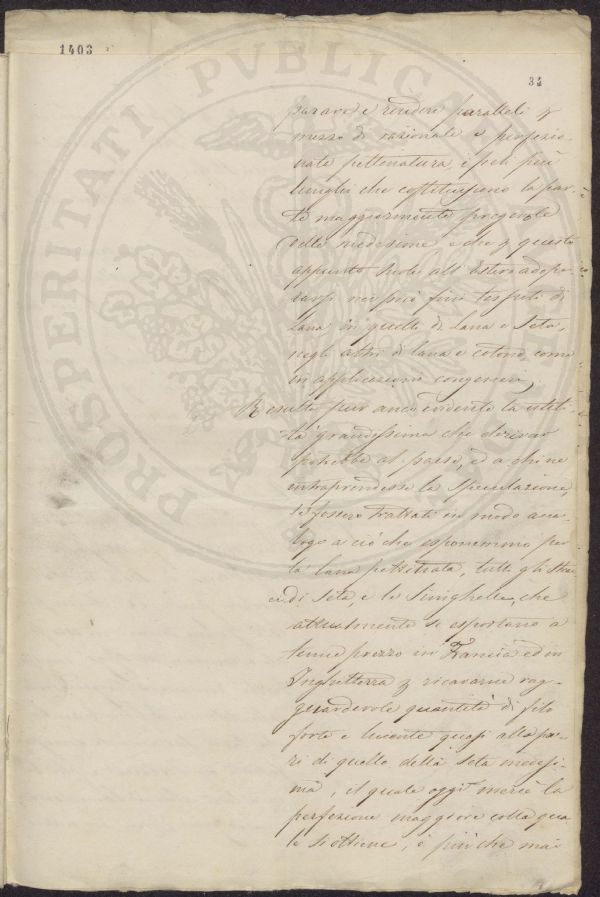 1403
34
PROSPERITATI PVBLICAE
parare e rendere paralleli p
mezzo di razionale e perfezio-
nata pettenatura, i peli più
lunghi che costituiscono la par-
te maggiormente pregevole
della medesima e che p questo
appunto suole all'estero adope-
rarsi nei più fini tessuti di
Lana in quelli di Lana e Seta,
negli altri di lana e cotone, come
in applicazioni congeneri.
Resulta pur anco evidente la utili-
tà grandissima che derivar
potrebbe al paese, ed a chi ne
intraprendesse la speculazione,
se fossero trattati in modo ana-
logo a ciò che esponemmo per
la lana pettinata, tutti gli strac-
ci di Seta, e le Sinighelle, che
attualmente si esportano a
tenue prezzo in Francia ed in
Inghilterra p ricavarne rag-
guardevole quantità di filo
forte e lucente quasi alla pa-
ri di quello della Seta medesi-
ma, il quale oggi mercè la
perfezione maggiore colla qua-
le si ottiene, è più che mai